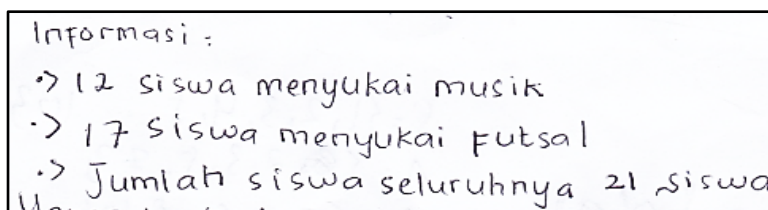 Informasi :
•> 12 siswa menyukai musik
•> 17 siswa menyukai Futsal
•> Jumlah siswa seluruhnya 21 siswa